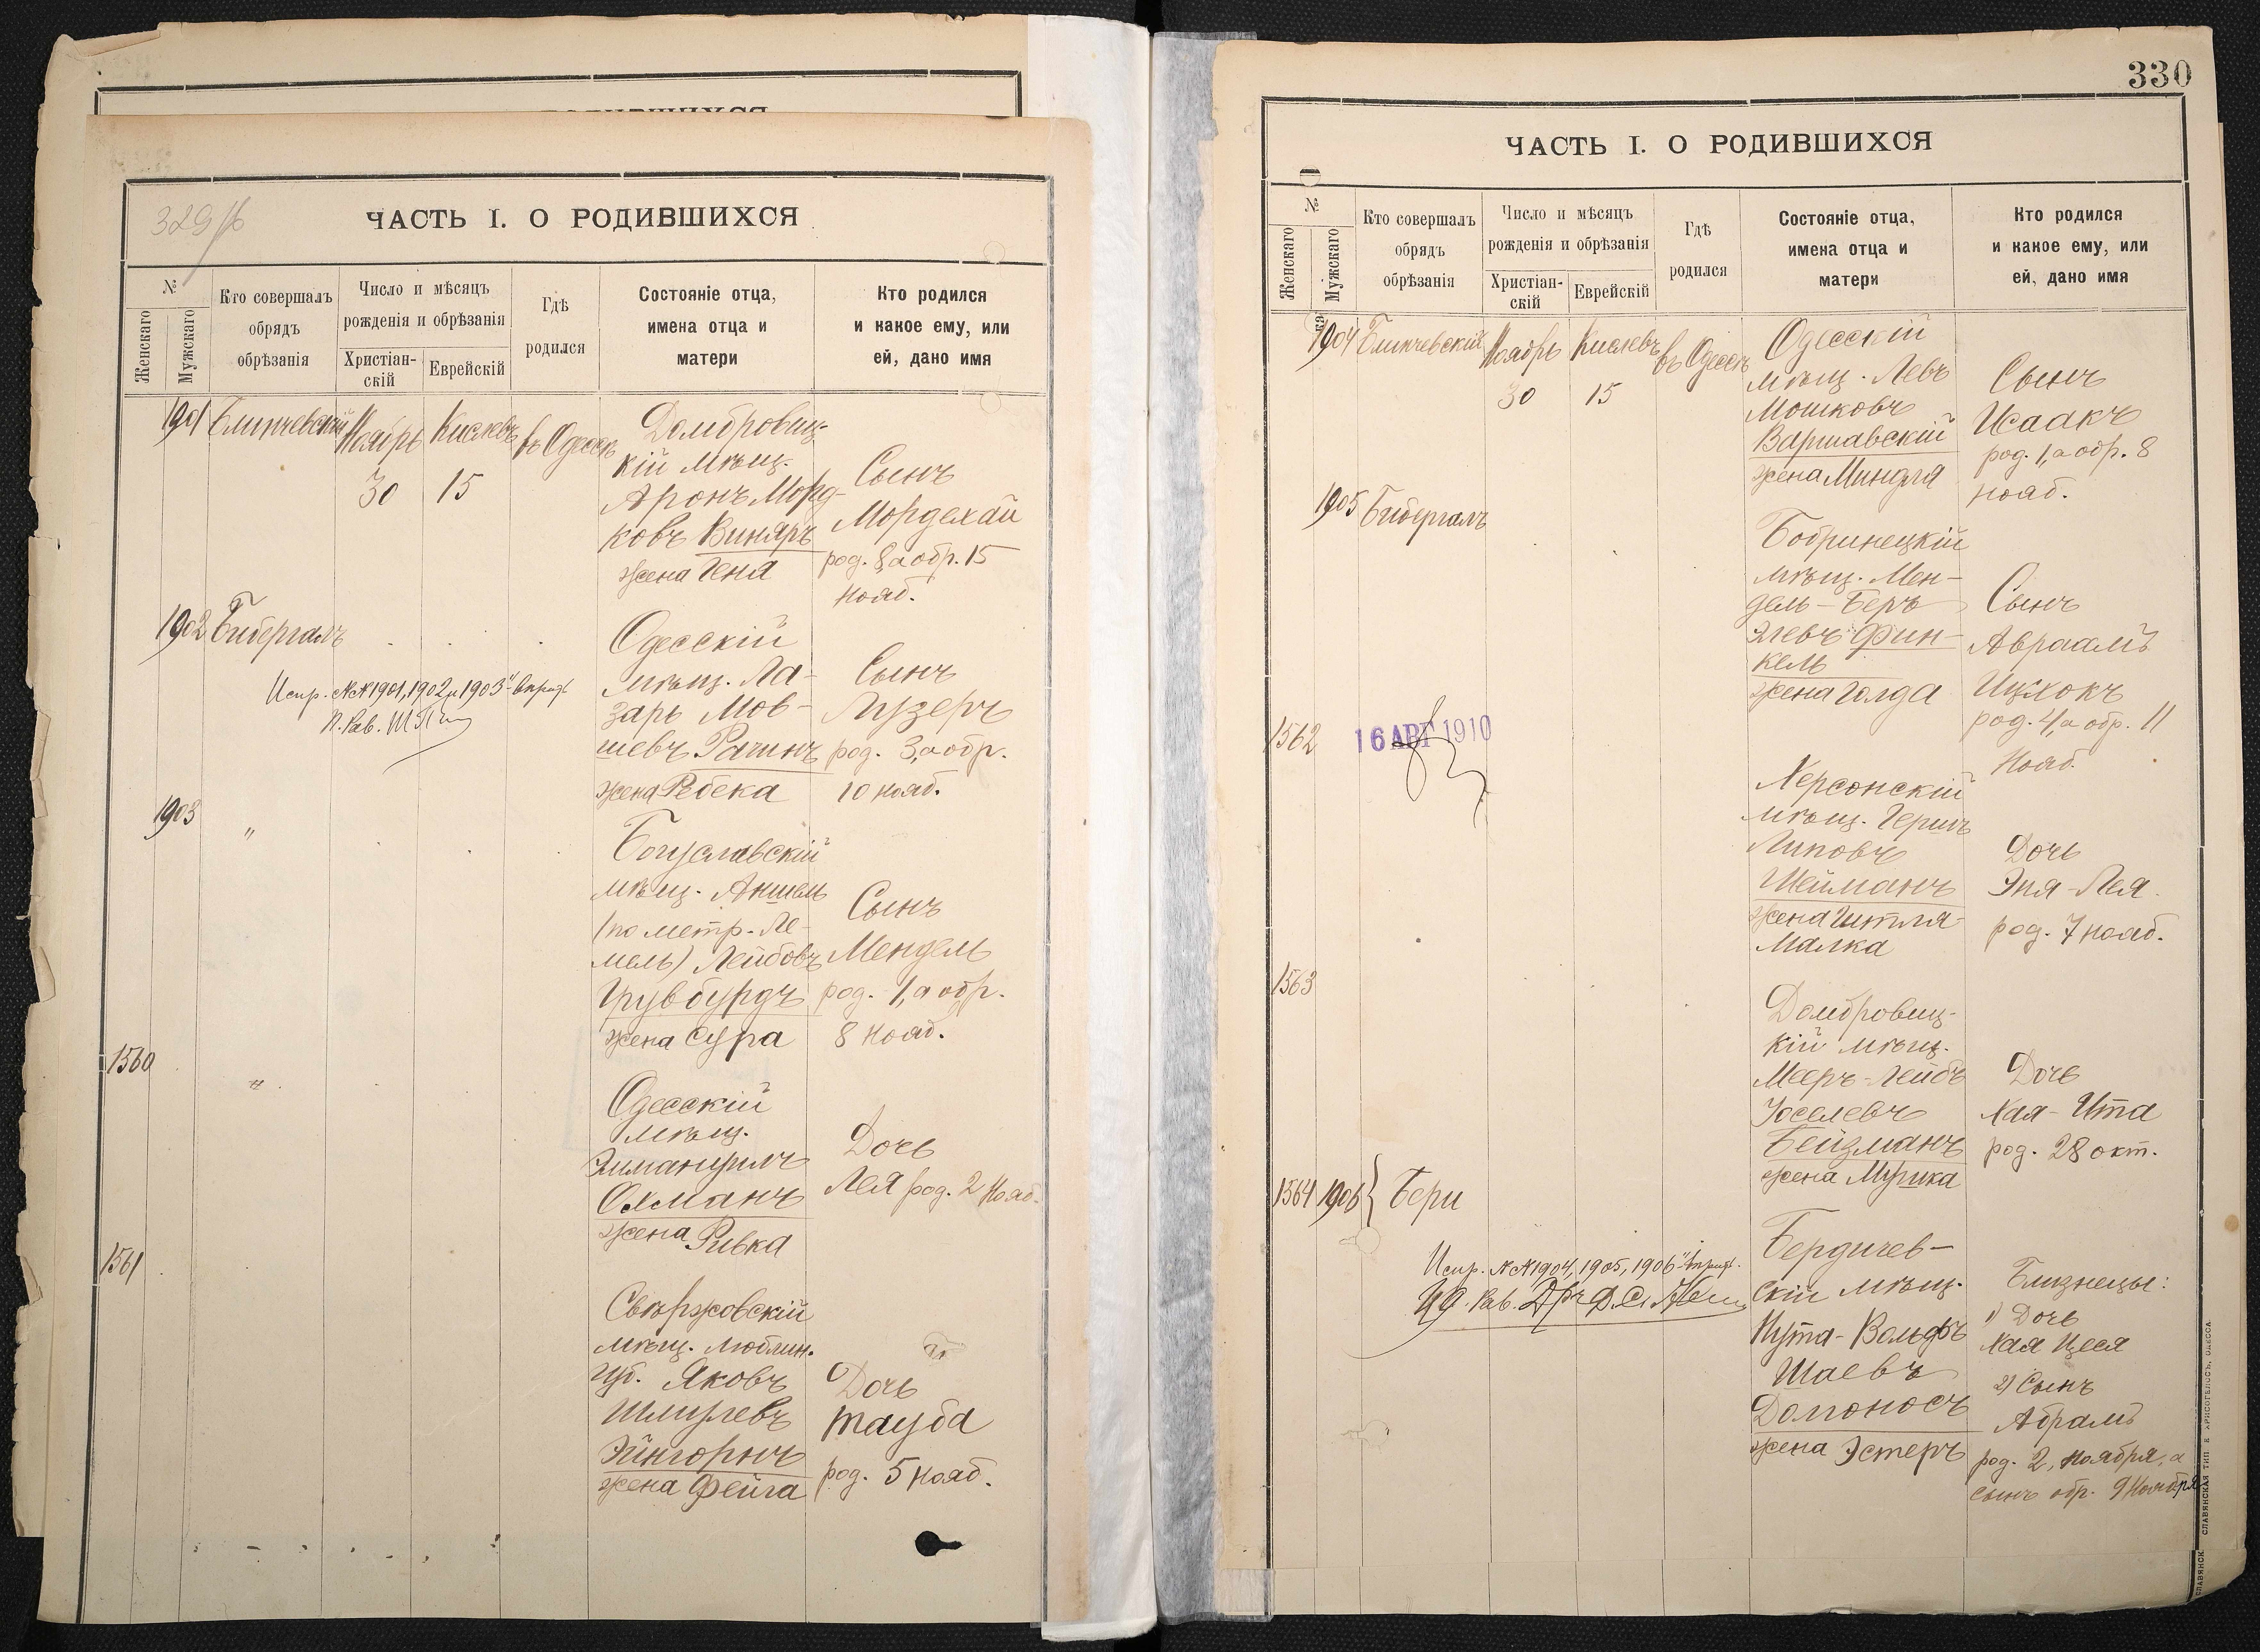 329/б
ЧАСТЬ I. О РОДИВШИХСЯ
№
Женскаго
Мужскаго
Кто совершалъ
обрядъ
обрѣзанія
Число и мѣсяцъ
рожденія и обрѣзанія
Христіан-
скій
Еврейскій
Гдѣ
родился
Состояніе отца,
имена отца и
матери
Кто родился
и какое ему, или
ей, дано имя
1901 Блинчевскій Ноябрь Кислевъ въ Одессѣ
30 15
Домбровиц-
кій мѣщ.
Аронъ Морд-
ковъ Виняръ
жена Геня
Сынъ
Мордехай
род. 8, а обр. 15
нояб.
1902 Бибергалъ
Испр. №№ 1901, 1902 и 1903
П. Рав.
Одесскій
мѣщ. Ла-
зарь Мов-
шевъ Рачинъ
жена Ребека
Сынъ
Лузеръ
род. 3, а обр.
10 нояб.
1903 "
Богуславскій
мѣщ. Аншель
(по метр. Ле-
мель) Лейбовъ
Грувбурдъ
жена Сура
Сынъ
Мендель
род. 1, а обр.
8 нояб.
1560 "
Одесскій
мѣщ.
Эммануилъ
Охманъ
жена Ривка
Дочь
Лея род. 2 Нояб.
1561
Свѣржовскій
мѣщ. Люблин.
губ. Яковъ
Шмулевъ
Эйнгорнъ
жена Фейга
Дочь
Тауба
род. 5 нояб.
330
ЧАСТЬ I. О РОДИВШИХСЯ
№
Женскаго
Мужскаго
Кто совершалъ
обрядъ
обрѣзанія
Число и мѣсяцъ
рожденія и обрѣзанія
Христіан-
скій
Еврейскій
Гдѣ
родился
Состояніе отца,
имена отца и
матери
Кто родился
и какое ему, или
ей, дано имя
1904 Блинчевскій Ноябрь Кислевъ въ Одессѣ
30 15
Одесскій
мѣщ. Левъ
Мошковъ
Варшавскій
жена Миндля
Сынъ
Исаакъ
род. 1, а обр. 8
нояб.
1905 Бибергалъ
Бобринецкій
мѣщ. Мен-
дель-Беръ
Элевъ Фин-
кель
жена Голда
Сынъ
Авраамъ
Ицхокъ
род. 4, а обр. 11
Нояб.
1562
16 АВГ 1910
Херсонскій
мѣщ. Гершъ
Липовъ
Шейманъ
жена Гитля-
Малка
Дочь
Эня-Лея
род. 7 нояб.
1563
Домбровиц-
кій мѣщ.
Мееръ-Лейбъ
Іоселевъ
Бейзманъ
жена Мушка
Дочь
Хая-Ита
род. 28 окт.
1564 1906 } Бери
Испр. №№ 1904, 1905, 1906
Рав. Дръ
Бердичев-
скій мѣщ.
Нута-Вольфъ
Шаевъ
Домоносъ
жена Эстеръ
Близнецы:
1) Дочь
Хая Цеся
2) Сынъ
Абрамъ
род. 2, ноября, а
сынъ обр. 9 Ноября